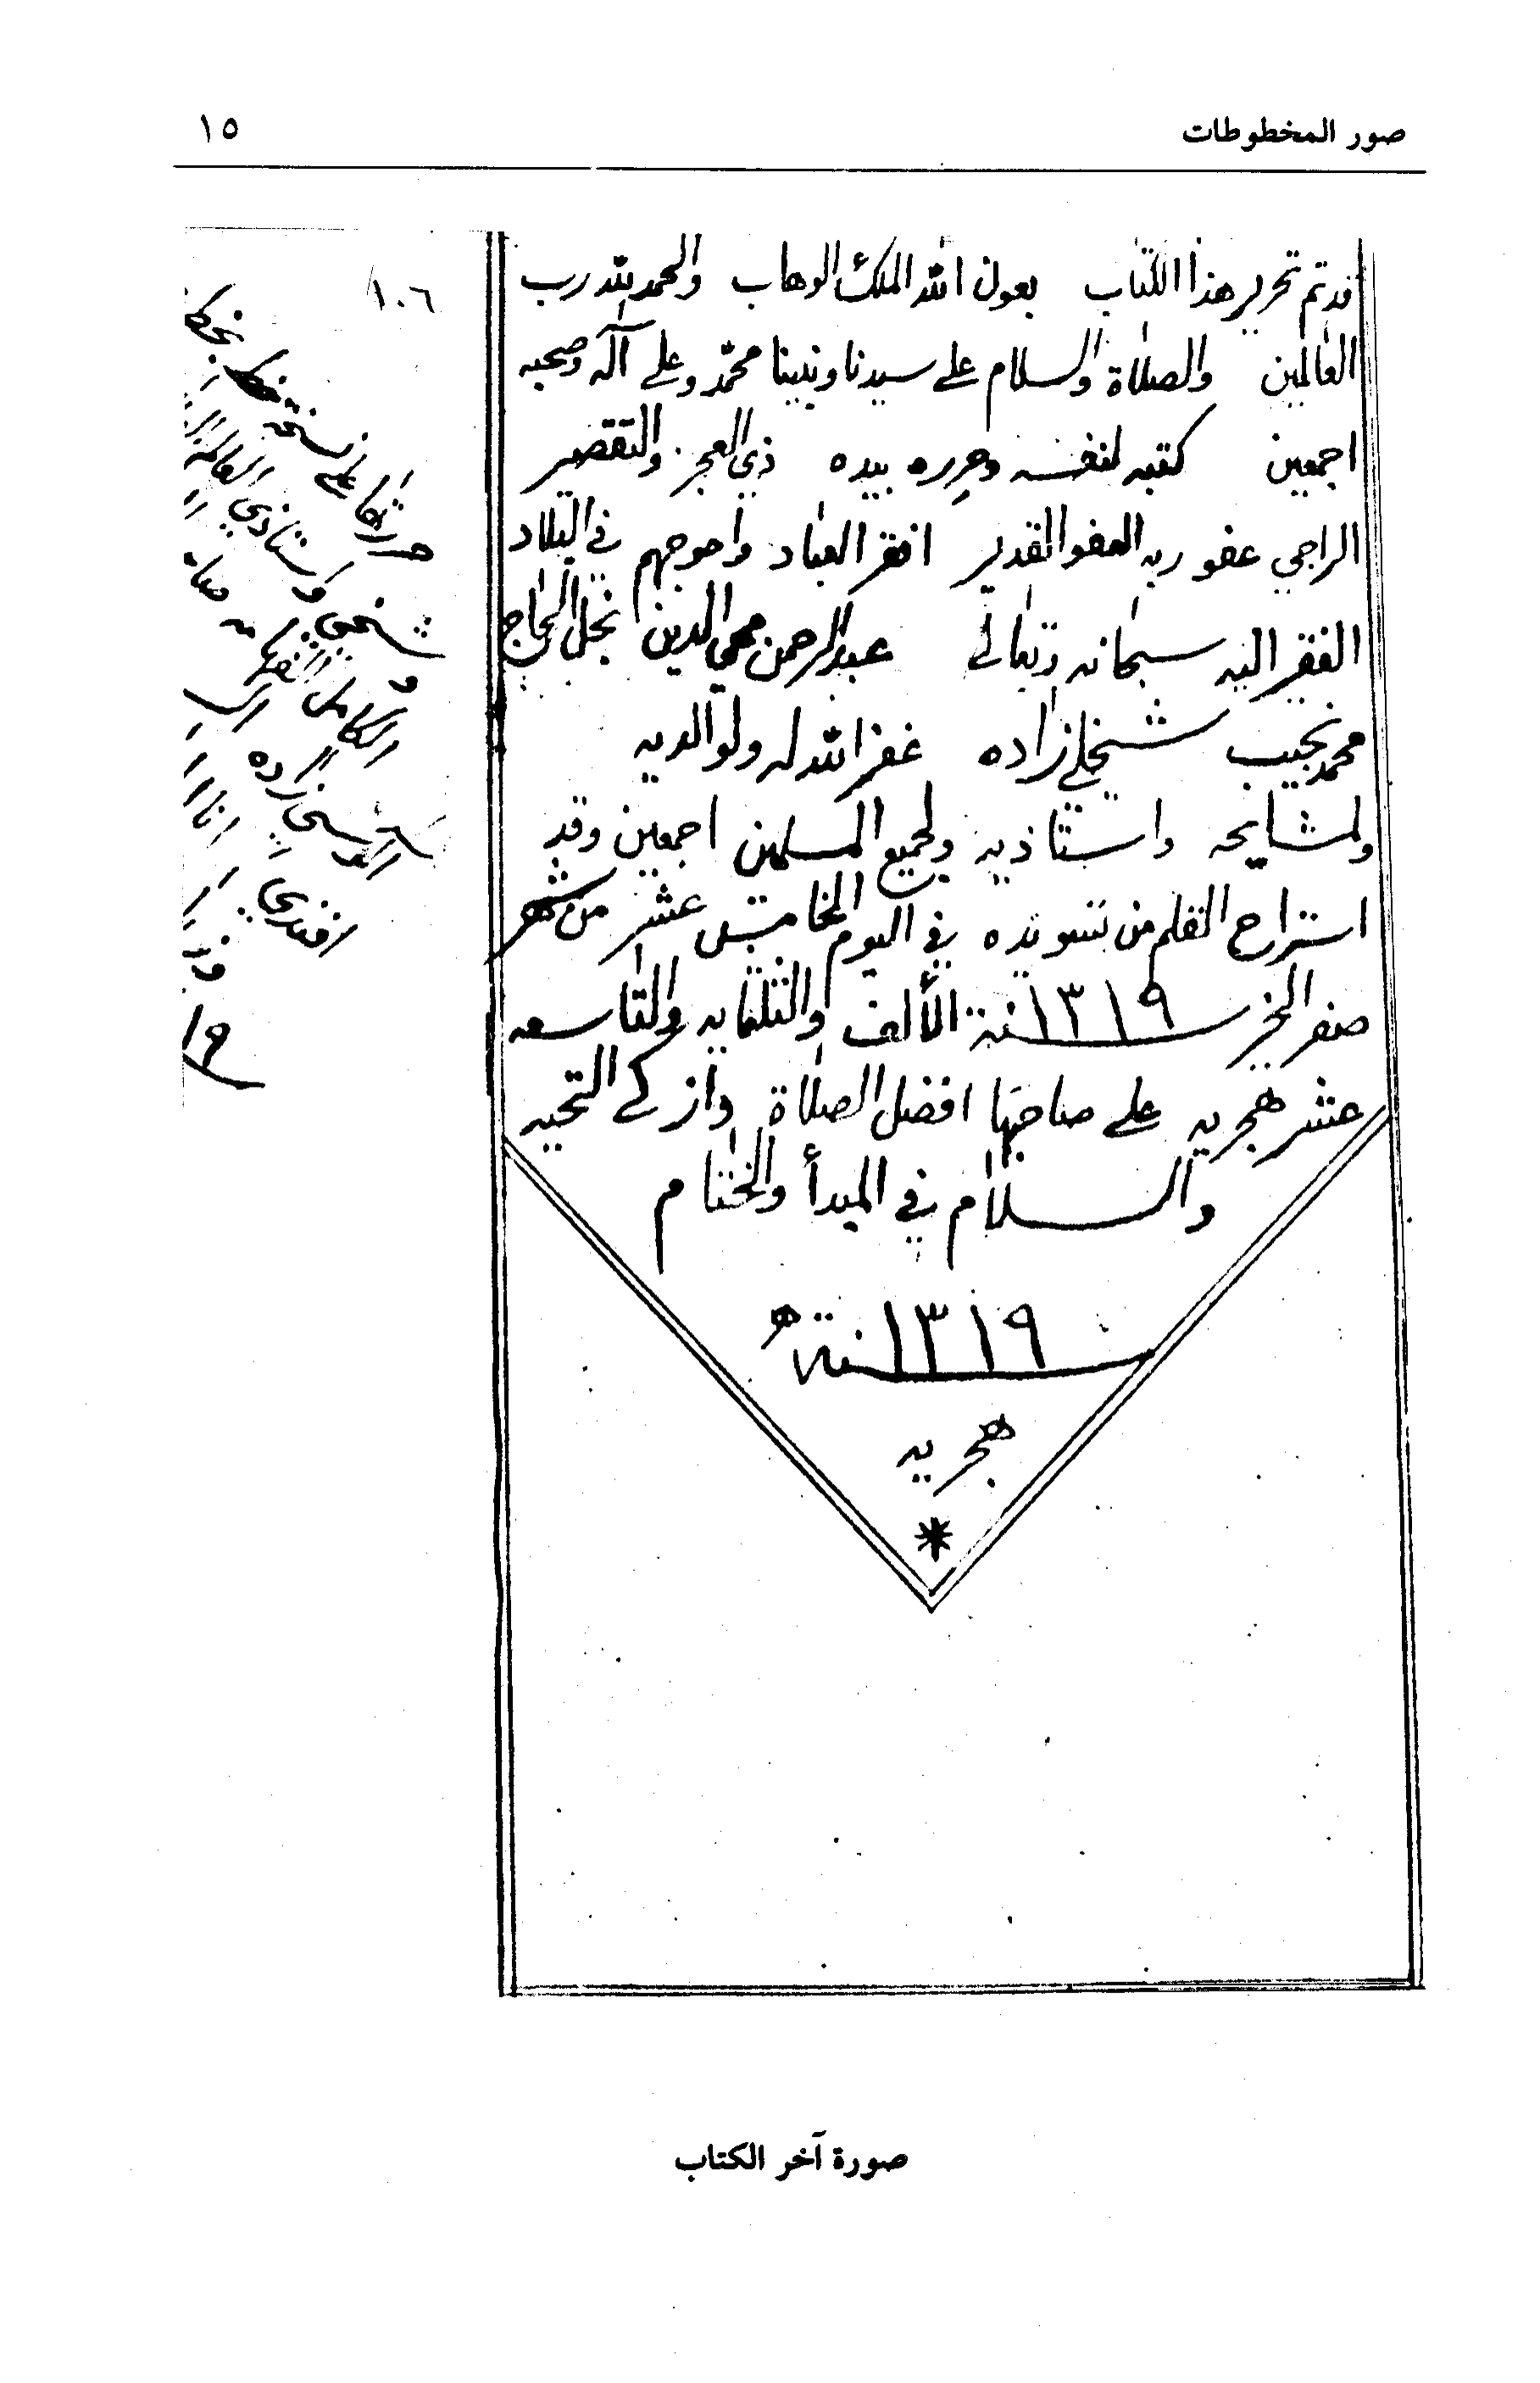 صور المخطوطات
١٥
قد تم تحرير هذا الكتاب بعون الله الملك الوهاب والحمد لله رب
العالمين والصلاة والسلام على سيدنا ونبينا محمد وعلى آله وصحبه
اجمعين كتبه لنفسه وحرره بيده ذي العجز والتقصير
الراجي عفو ربه العفو القدير افقر العباد واحوجهم في البلاد
الفقير اليه سبحانه وتعالى عبد الرحمن محي الدين نجل الحاج
محمد نجيب شيخلي زاده غفر الله له ولوالديه
ولمشايخه واستاذيه ولجميع المسلمين اجمعين وقد
استراح القلم من تسويده في اليوم الخامس عشر من شهر
صفر الخير ١٣١٩ سنة الألف والثلثمايه والتاسعه
عشر هجريه على صاحبها افضل الصلاة وازكى التحيه
والسلام في المبدأ والختام
سنة ١٣١٩ ه
هجريه
١٠٦
على نسخة
واستاذي العالم
شيخي
الكامل
زاده
افندي
صورة آخر الكتاب